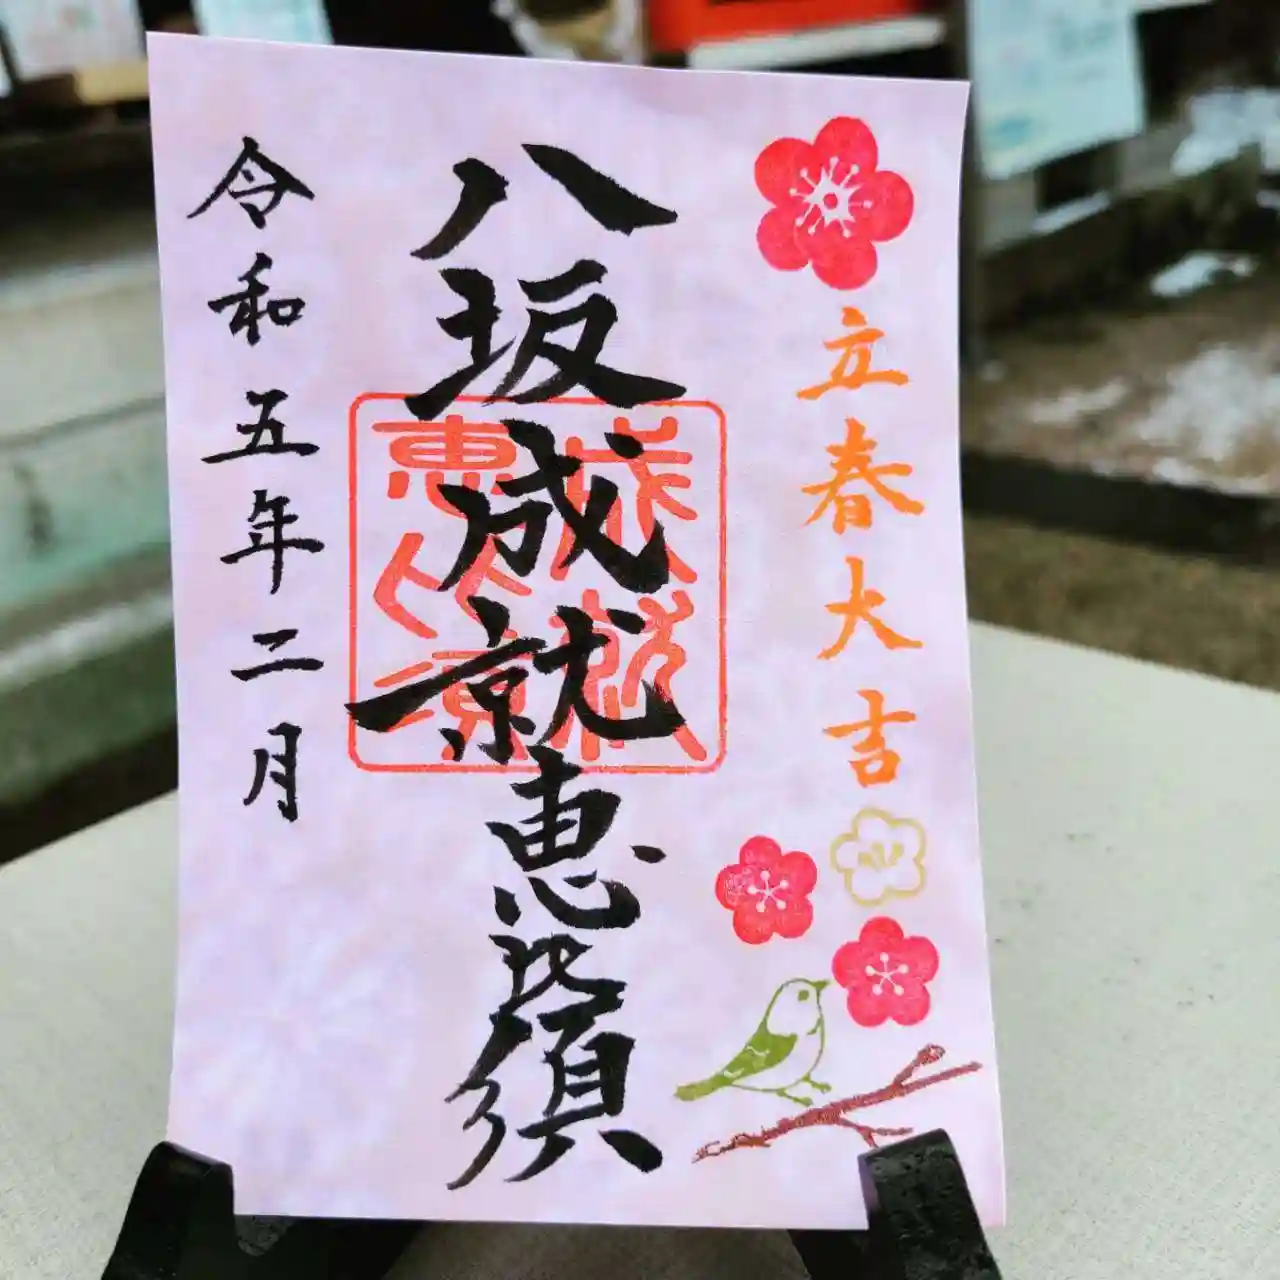 立春大吉
八坂成就恵比須
成就
恵比須
令和五年二月